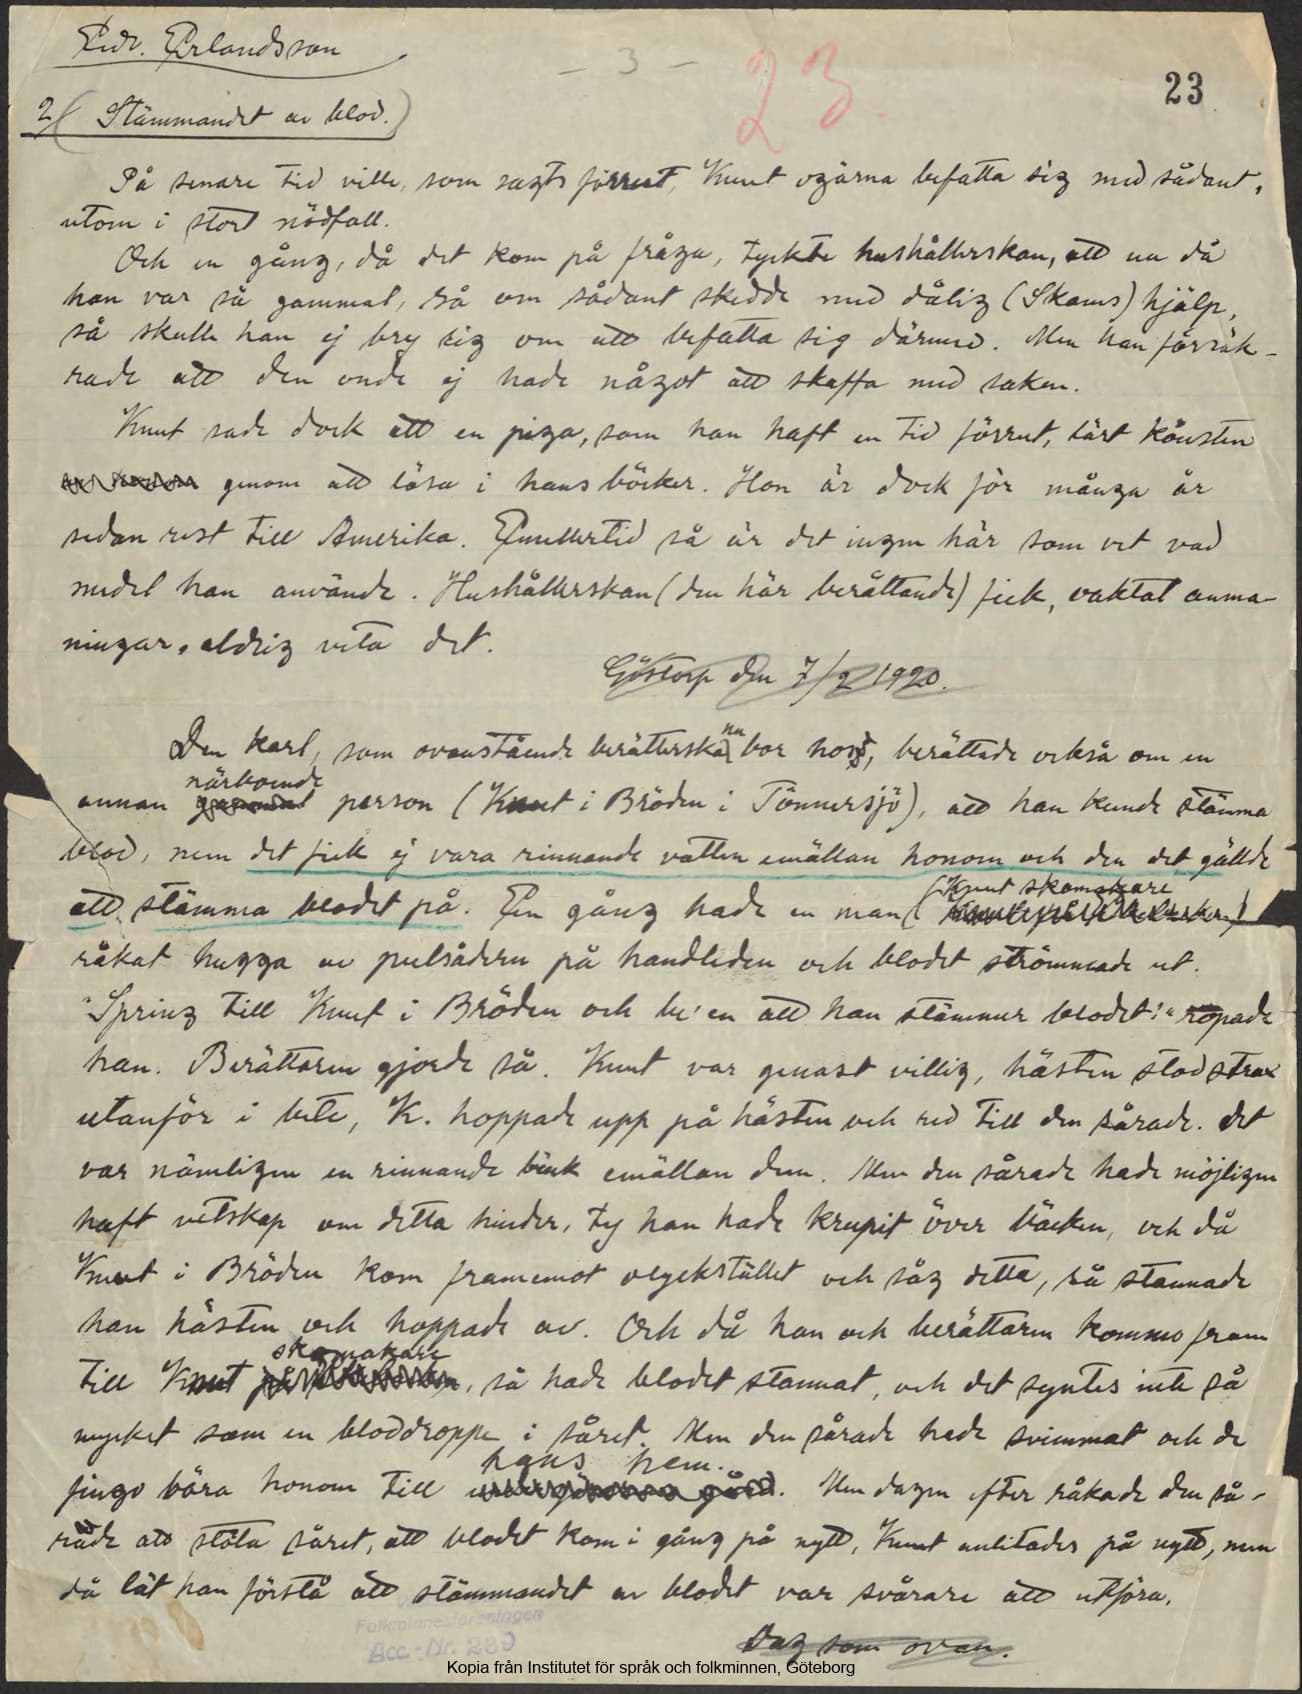 Edv. Erlandsson
- 3 -
23
23
2/ (Stämmandet av blod.)
På senare tid ville, som sagts förrut, Knut ogärna befatta sig med sådant,
utom i stort nödfall.
Och en gång, då det kom på fråga, tyckte hushållerskan, att nu då
han var så gammal, så om sådant skedde med dålig (Skams) hjälp,
så skulle han ej bry sig om att befatta sig därmed. Men han försäk-
rade att den onde ej hade något att skaffa med saken.
Knut sade dock att en piga, som han haft en tid förrut, lärt konsten
genom att läsa i hans böcker. Hon är dock för många år
sedan rest till Amerika. Emellertid så är det ingen här som vet vad
medel han använde. Hushållerskan (den här berättande) fick, oaktat anma-
ningar, aldrig veta det.
Göstorp den 7/2 1920.
Den karl, som ovanstående berätterska nu bor hos, berättade också om en
annan närboende person (Knut i Bröden i Tönnersjö), att han kunde stämma
blod, men det fick ej vara rinnande vatten emällan honom och den det gällde
att stämma blodet på. En gång hade en man (Knut skomakare)
råkat hugga av pulsådern på handleden och blodet strömmade ut.
"Spring till Knut i Bröden och be'en att han stämmer blodet!" ropade
han. Berättaren gjorde så. Knut var genast villig, hästen stod strax
utanför i bete, K. hoppade upp på hästen och red till den sårade. Det
var nämligen en rinnande bäck emällan dem. Men den sårade hade möjligen
haft vetskap om detta hinder, ty han hade krupit över bäcken, och då
Knut i Bröden kom framemot olyckstället och såg detta, så stannade
han hästen och hoppade av. Och då han och berättaren kommo fram
till Knut skomakare, så hade blodet stannat, och det syntes inte så
mycket som en bloddroppe i såret. Men den sårade hade svimmat och de
fingo bära honom till hans hem. Men dagen efter råkade den så-
rade att stöta såret, att blodet kom i gång på nytt, Knut anlitades på nytt, men
då lät han förstå att stämmandet av blodet var svårare att utföra.
Dag som ovan.
Folkminnesföreningen
Acc.-Nr. 280
Kopia från Institutet för språk och folkminnen, Göteborg